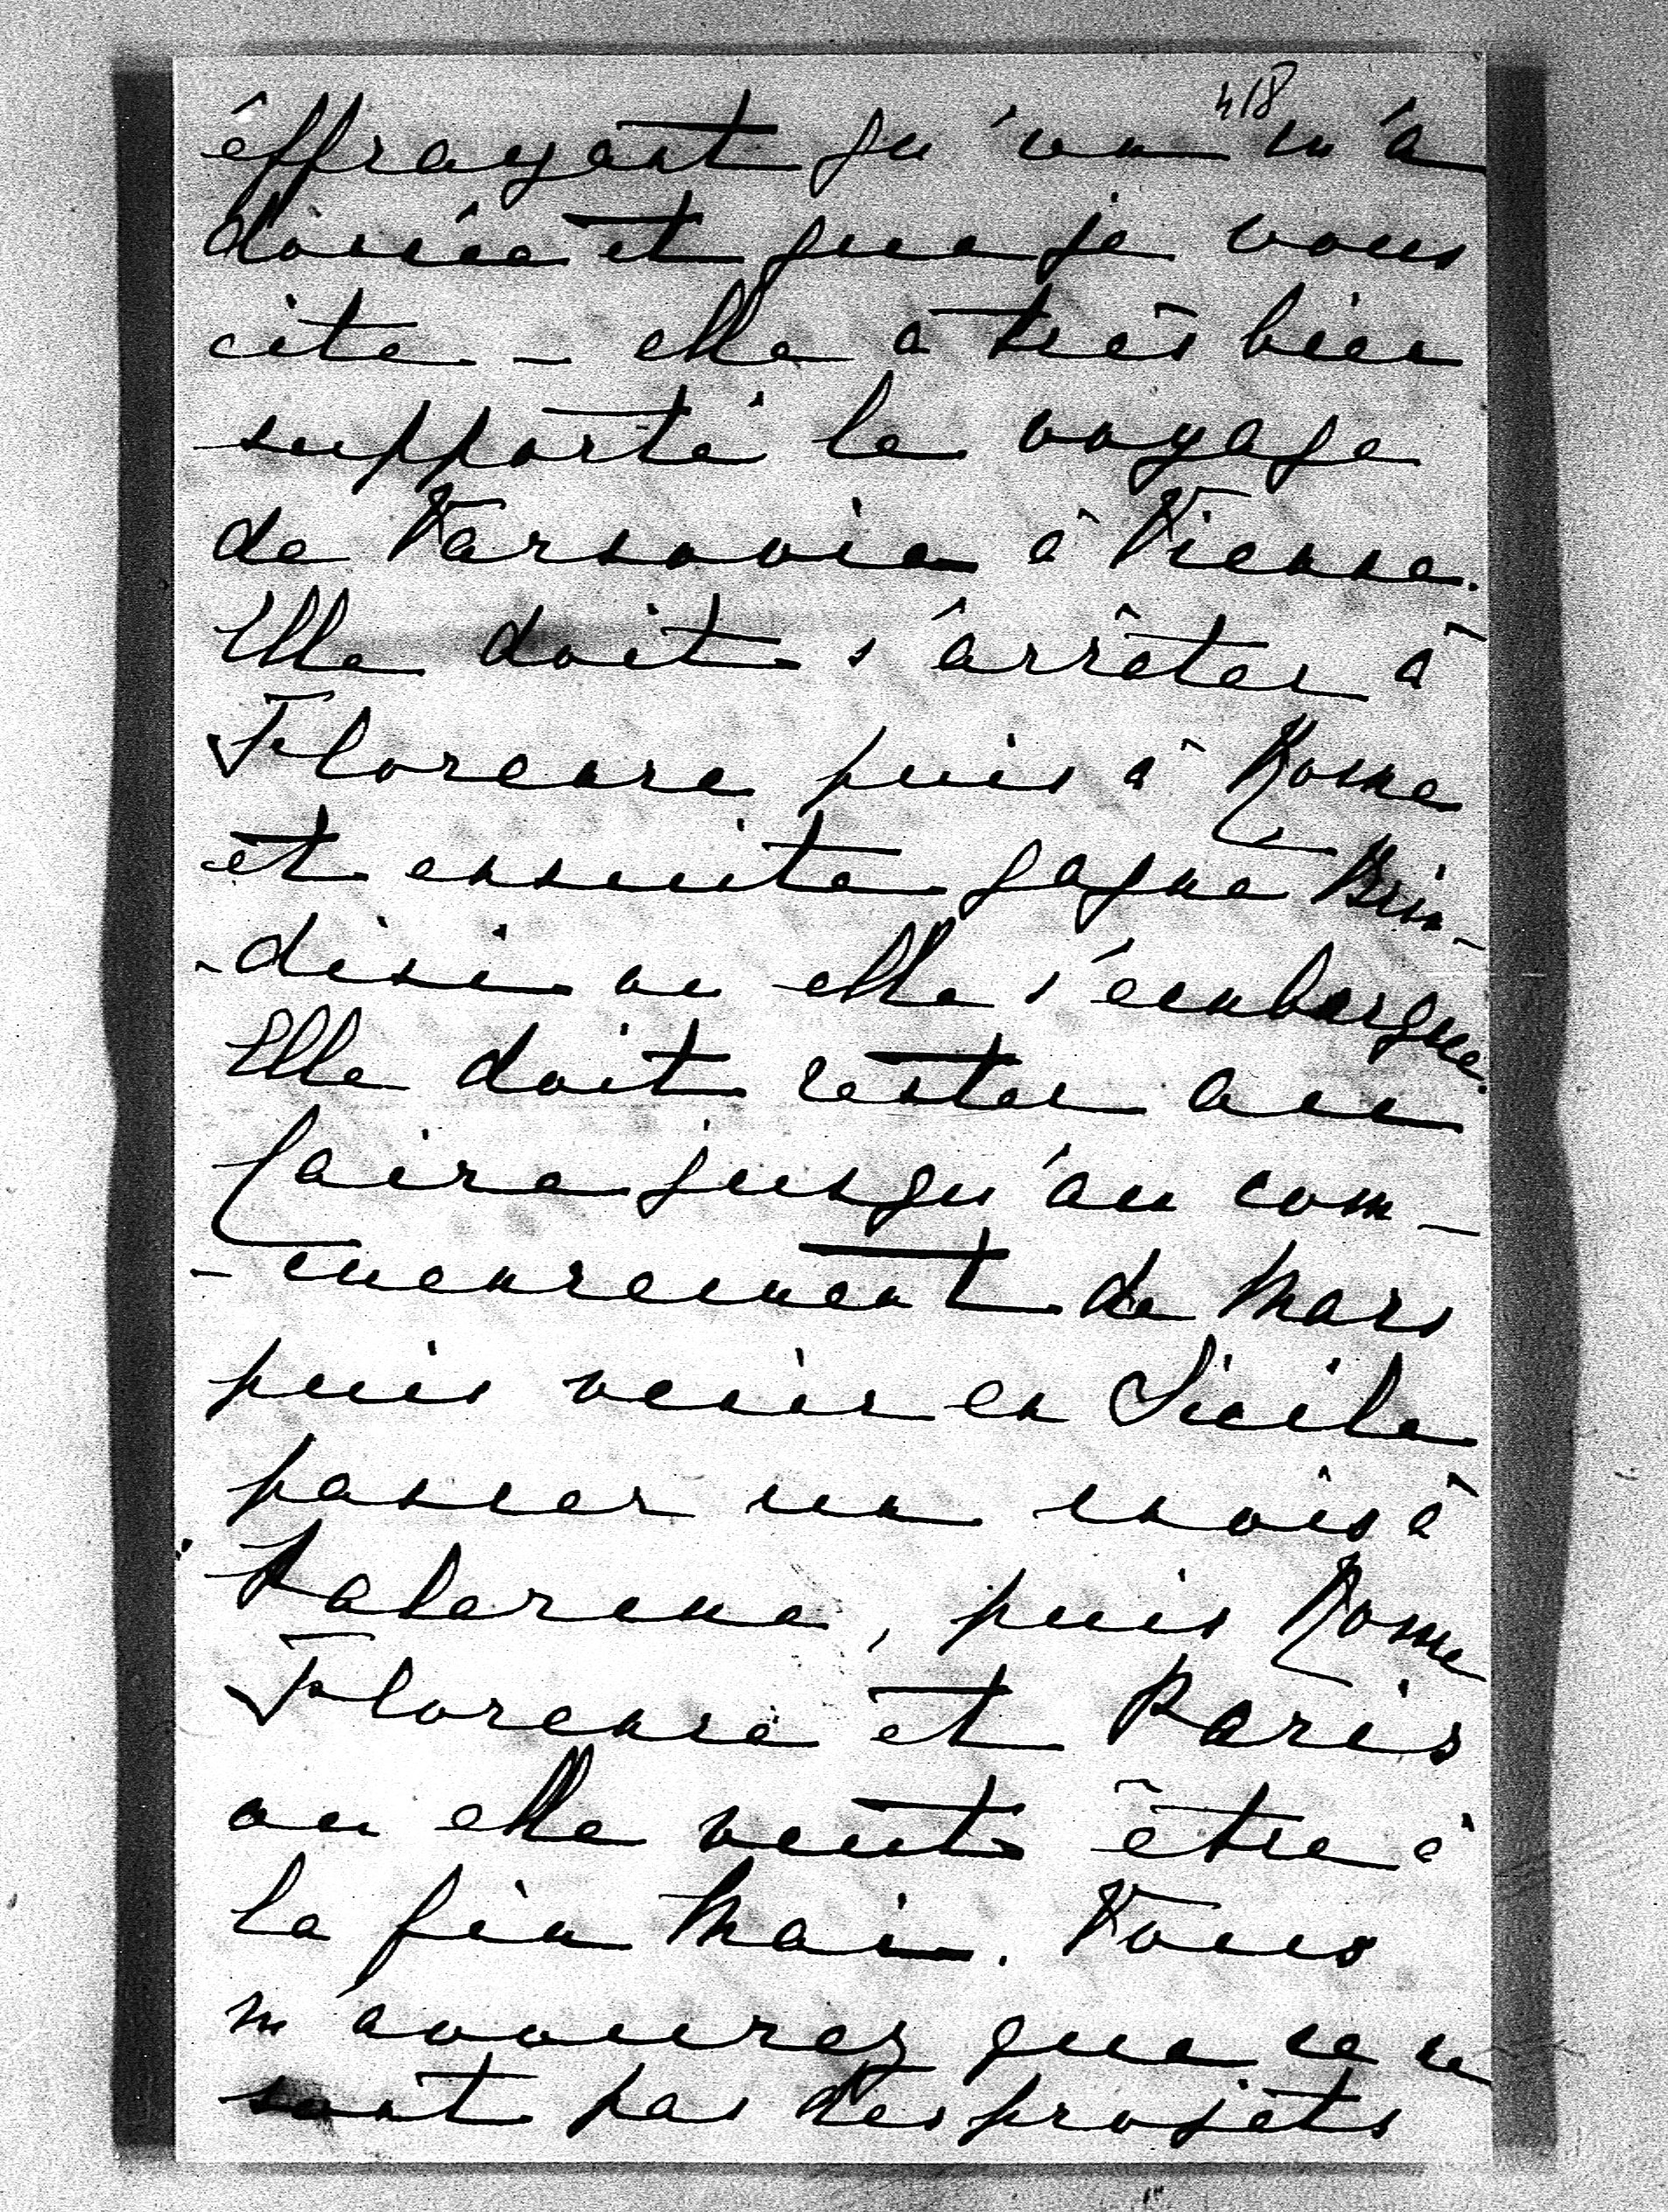 418
éffrayant qu'un m'a
donnée et que je vous
cite - elle a très bien
supporté le voyage
de Varsovie à Vienne.
Elle doit s'arrêter à
Florence puis à Rome
et ensuite gagne Brin-
-disi ou elle s'embarque.
Elle doit rester au
Caire jusqu'au com-
-mencement de Mars
puis venir en Sicile
passer un mois à
Palerme, puis Rome
Florence et Paris
ou elle veut être à
la fin Mai. Vous
m'avouerez que ce ne
sont pas des projets